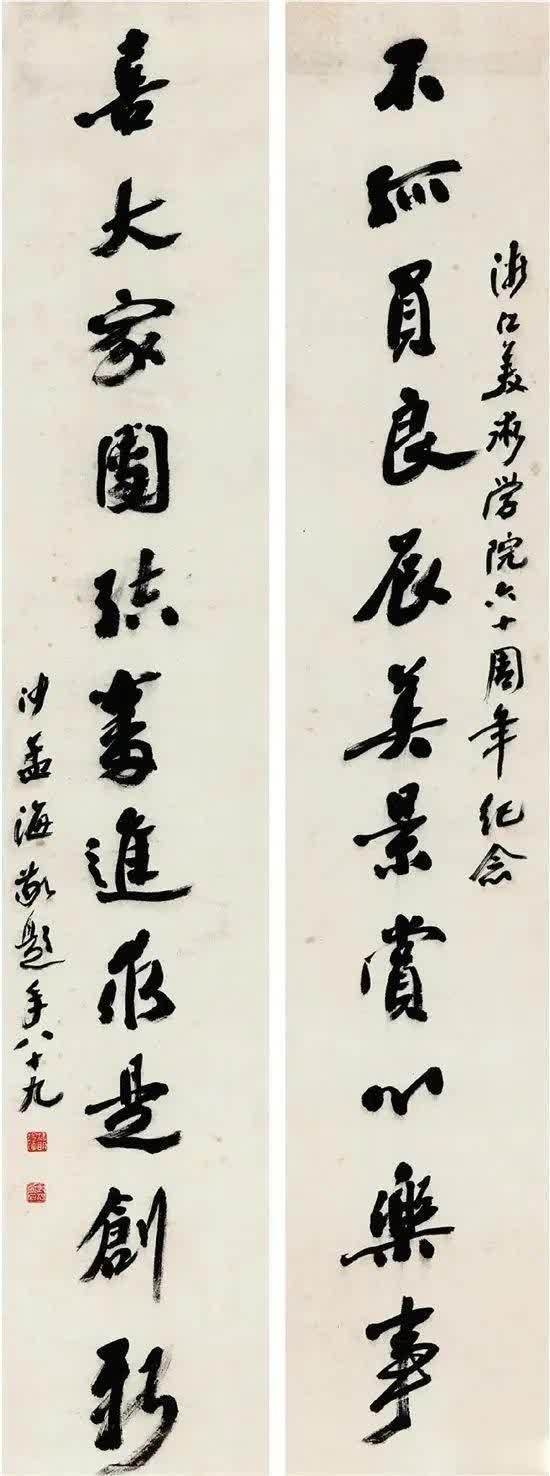 浙江美術学院六十周年纪念
不孤負良辰美景賞心樂事
喜大家團結奮進求是創新
沙孟海敬題年八十九